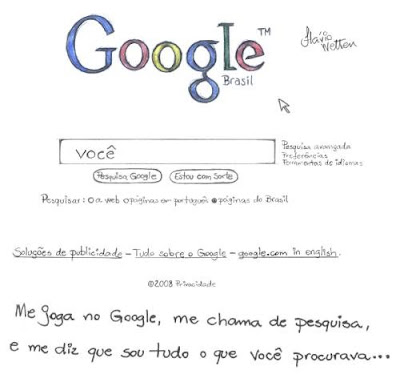 Google™
Brasil
Flávio Wetten
você
Pesquisa avançada
Preferências
Ferramentas de idiomas
Pesquisa Google Estou com Sorte
Pesquisar: a web páginas em português páginas do Brasil
Soluções de publicidade - Tudo sobre o Google - google.com in english.
©2008 Privacidade
Me joga no Google, me chama de pesquisa,
e me diz que sou tudo o que você procurava...